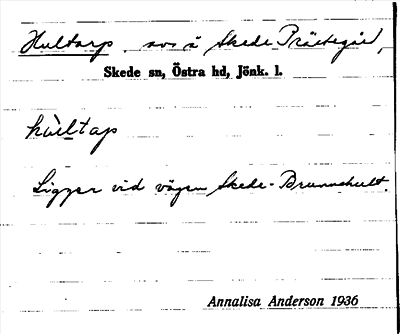 Hultarp, avs å Skede Prästegård,
Skede sn, Östra hd, Jönk. l.
hùltap
Ligger vid vägen Skede-Brunnshult.
Annalisa Anderson 1936